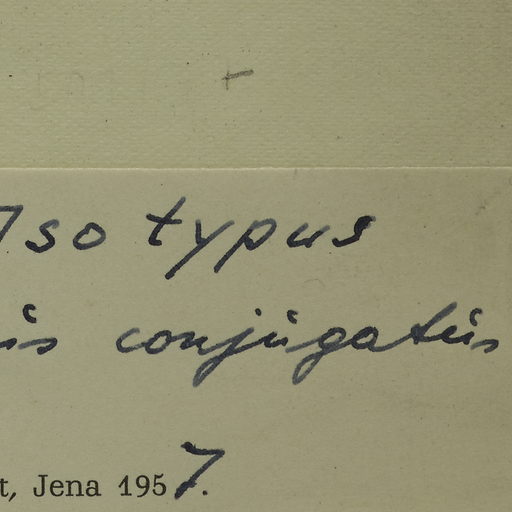 Isotypus
is conjugatus
t, Jena 1957.